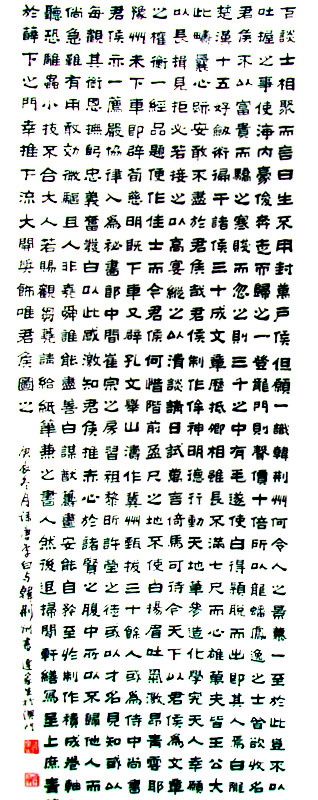 下談士相聚而言曰生不用封萬戶侯但願一識韓荊州何令人之景慕一至於此豈不以
吐握之事使海内豪俊奔走而歸之一登龍門則聲價十倍所以龍蟠鳳逸之士皆欲收名
君侯不以富貴而驕之寒賤而忽之則三千之中有毛遂使白得穎脫而出即其人焉白隴
楚漢十五好劍術徧干諸侯三十成文章歷抵卿相雖長不滿七尺而心雄萬夫皆王公大
此疇曩心跡安敢不盡於君侯哉君侯制作侔神明德行動天地筆參造化學究天人幸願
以長揖見拒必若接之以高宴縱之以清談請日試萬言倚馬可待今天下以君侯為文章
之權衡一經品題便作佳士而今君侯何惜階前盈尺之地不使白揚眉吐氣激昂青雲耶
豫州未下車即辟荀慈明既下車又辟孔文舉山濤作冀州甄拔三十餘人或為侍中尚書
君侯亦一薦嚴協律入為秘書郎中間崔宗之房習祖黎昕許瑩之徒或以才名見知或
每觀其銜恩撫躬忠義奮發白以此感激知君侯推赤心於諸賢之腹中所以不歸他人而
倘急難有用敢效微軀且人非堯舜誰能盡善白謨猷籌畫安能自矜至於制作積成卷軸
聽恐雕蟲小技不合大人若賜觀芻蕘請給紙筆兼之書人然後退掃閒軒繕寫呈上庶青
於薛卞之門幸推下流大開獎飾唯君侯圖之
庚辰冬月錄唐李白与韓荊州書